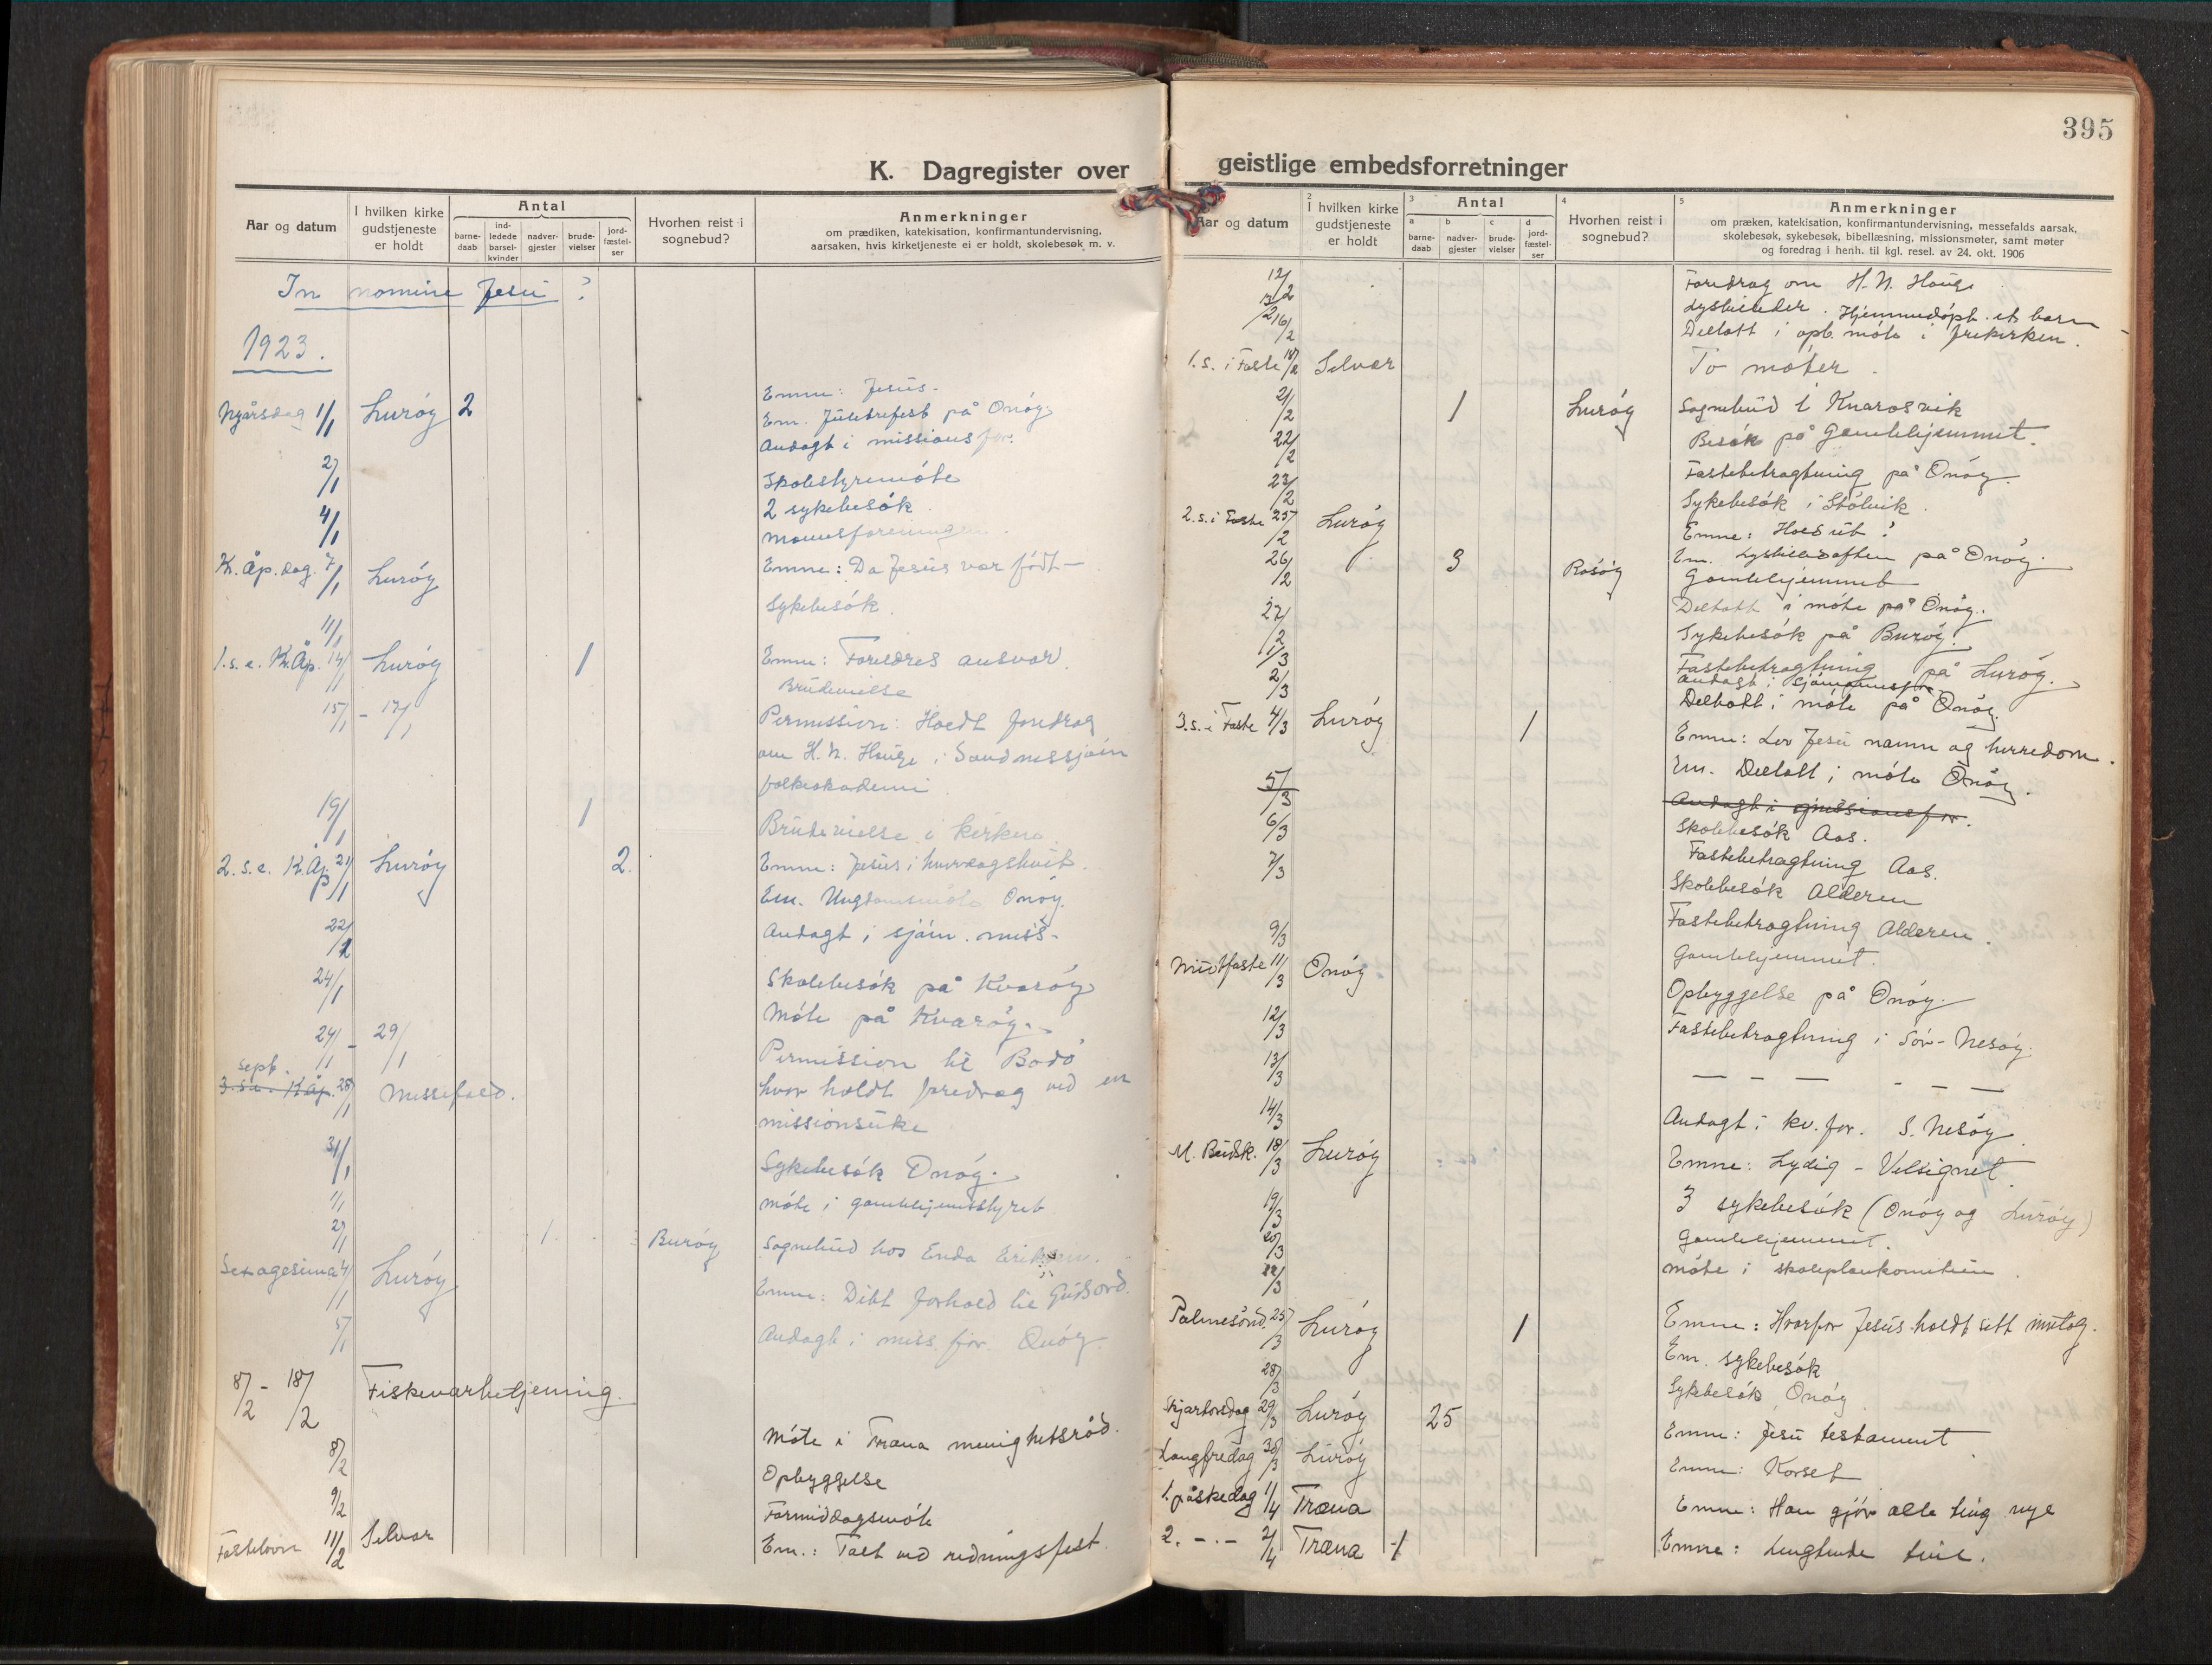 K. Dagregister over
Aar og datum
I hvilken kirke gudstjeneste er holdt
Antal
barne-daab
ind-ledede barsel-kvinder
nadver-gjester
brude-vielser
jord-fæstel-ser
Hvorhen reist i sognebud?
Anmerkninger
om prædiken, katekisation, konfirmantundervisning,
aarsaken, hvis kirketjeneste ei er holdt, skolebesøk m. v.
In nomine Jesu
1923.
Emne: Jesus.
Nyårsdag 1/1 Lurøy 2 Em. Juletrefest på Onøy
Andagt i missionsfor.
2/1 Skolestyremöte
2 sykebesök
4/1 Mannsforeningen
Kr. Åp. dag. 7/1 Lurøy Emne: Da Jesus var født
11/1 Sykebesök.
1. s. e. Kr. Åp. 14/1 Lurøy 1 Emne: Foreldres ansvar.
Brudevielse
15/1 - 17/1 Permission: Holdt foredrag
om H. N. Hauge i Sandnessjøen
folkeakademi
19/1 1 Brudevielse i kirken
2. s. e. K. Åp. 21/1 Lurøy 2 Emne: Jesus i hverdagslivet.
Em. Ungdomsmöte Onøy.
22/1 Andagt i sjøm. miss.
24/1 Skolebesök på Kvarøy
Möte på Kvarøy.
24/1 - 29/1 Permission til Bodö
Sept.
3. s. e. K. Åp. 28/1 Messefald. hvor holdt foredrag ved en
missionsuke
31/1 Sykebesök Onøy.
1/1 Möte i gamlehjemsstyret
2/1 1 Burøy Sognebud hos Enda Eriksen.
Sexagesima 4/1 Lurøy Emne: Ditt forhold til Guds ord.
5/1 Andagt i miss. for. Onøy.
8/2 - 18/2 Fiskeværbetjening.
8/2 Möte i Træna menighetsråd.
Opbyggelse
9/2 Formiddagsmöte
Fastelavn 11/2 Selvær Em.: Talt ved redningsfest.
395
geistlige embedsforretninger
Aar og datum
2 I hvilken kirke gudstjeneste er holdt
3 Antal
a barne-daab
b nadver-gjester
c brude-vielser
d jord-fæstel-ser
4 Hvorhen reist i sognebud?
5 Anmerkninger
om præken, katekisation, konfirmantundervisning, messefalds aarsak,
skolebesøk, sykebesøk, bibellæsning, missionsmøter, samt møter
og foredrag i henh. til kgl. resel. av 24. okt. 1906
12/2 Foredrag om H. N. Hauge
13/2 Lysbileder. Hjemmedöpt et barn
16/2 Deltatt i opb. möte i frikirken.
1. s. i Faste 18/2 Selvær To möter.
21/2 1 Lurøy Sognebud i Kvarøsvik
22/2 Besök på Gamlehjemmet.
23/2 Fastebetragtning på Onøy.
Sykebesök i Stölvik.
2. s. i Faste 25/2 Lurøy Emne: Hold ut!
Em. Lysbilledaften på Onøy.
26/2 3 Rosøy Gamlehjemmet
27/2 Deltatt i möte på Onøy.
Sykebesök på Burøy.
1/3 Fastebetragtning på Lurøy.
2/3 Andagt i sjømannsfor.
Deltatt i möte på Onøy.
3. s. i Faste 4/3 Lurøy 1 Emne: Lov Jesu navn og herredom.
Em. Deltatt i möte Onøy.
5/3 Andagt i missionsfor.
6/3 Skolebesök Aas.
Fastebetragtning Aas.
7/3 Skolebesök Alderen
Fastebetragtning Alderen.
9/3 Gamlehjemmet.
Midtfaste 11/3 Onøy Opbyggelse på Onøy.
12/3 Fastebetragtning i Sör-Nesøy.
13/3 — — — - — —
14/3 Andagt i kv. for. S. Nesøy.
M. Budsk. 18/3 Lurøy Emne: Lydig - Velsignet.
19/3 3 sykebesök (Onøy og Lurøy)
20/3 Gamlehjemmet.
22/3 Möte i skoleplankomiteen.
Palmesönd. 25/3 Lurøy 1 Emne: Hvorfor Jesus holdt sitt inntog.
Em. Sykebesök
28/3 Sykebesök Onøy.
Skjærtorsdag 29/3 Lurøy 25 Emne: Jesu testament
Langfredag 30/3 Lurøy Emne: Korset
1. påskedag 1/4 Træna Emne: Han gjör alle ting nye
2. - . - 2/4 Træna 1 Emne: